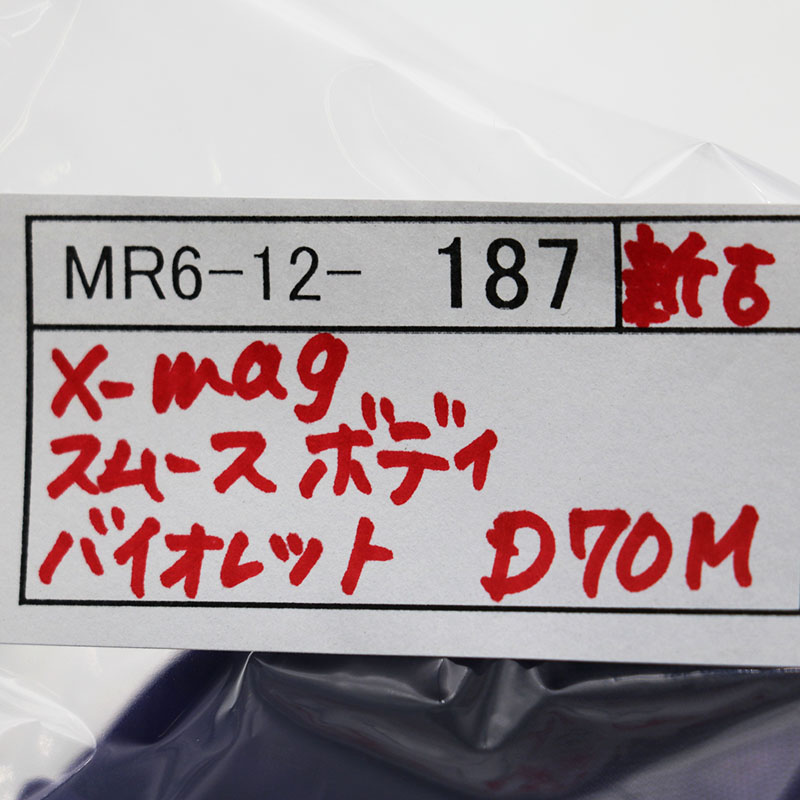 MR6-12- 187 新古
X-mag
スムース ボディ
バイオレット D70M